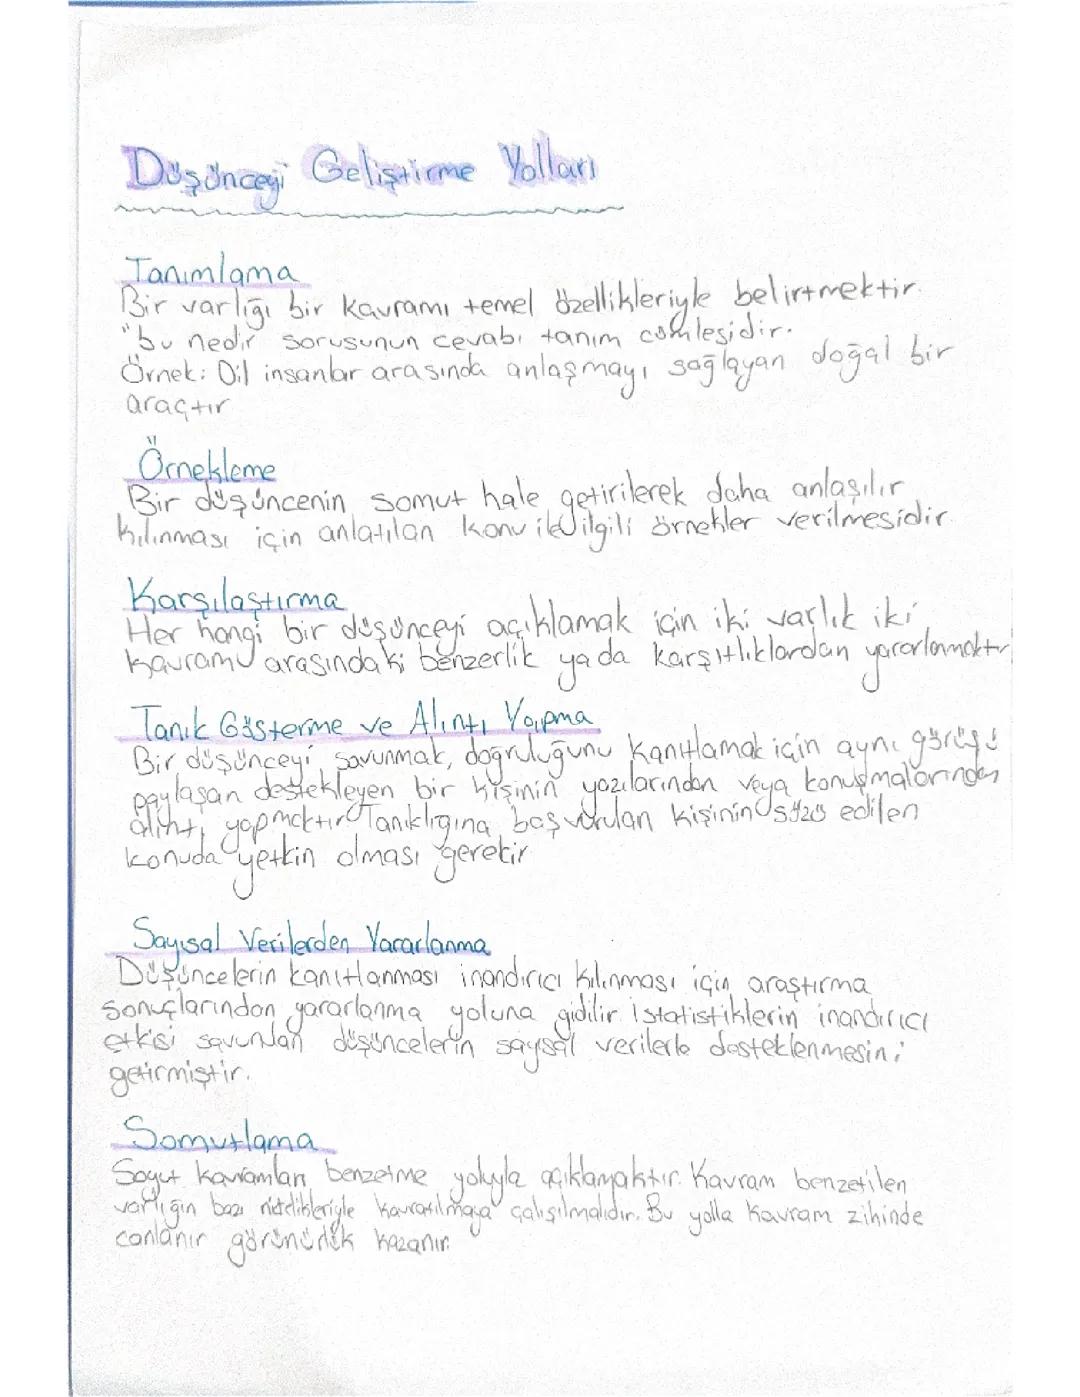 Düşünceyi Geliştirme Yolları
Tanımlama
Bir varlığı bir kavramı temel özellikleriyle belirtmektir.
"bu nedir sorusunun cevabı tanım cümlesidir.
Örnek: Dil insanlar arasında anlaşmayı sağlayan doğal bir
araçtır
Örnekleme
Bir düşüncenin somut hale getirilerek daha anlaşılır
kılınması için anlatılan konu ile ilgili örnekler verilmesidir.
Karşılaştırma
Her hangi bir düşünceyi açıklamak için iki varlık iki
kavramı arasındaki benzerlik ya da karşıtlıklardan yararlanmaktır
Tanık Gösterme ve Alıntı Yapma
Bir düşünceyi savunmak, doğruluğunu kanıtlamak için aynı görüşü
paylaşan destekleyen bir kişinin yazılarından veya konuşmalarından
alıntı yapmaktır Tanıklığına başvurulan kişinin sözü edilen
konuda yetkin olması gerekir
Sayısal Verilerden Yararlanma
Düşüncelerin kanıtlanması inandırıcı kılınması için araştırma
sonuçlarından yararlanma yoluna gidilir. İstatistiklerin inandırıcı
etkisi savunulan düşüncelerin sayısal verilerle desteklenmesini
getirmiştir.
Somutlama
Soyut kavramları benzetme yoluyla açıklamaktır. Kavram benzetilen
varlığın bazı nitelikleriyle kavratılmaya çalışılmalıdır. Bu yolla kavram zihinde
canlanır görünürlük kazanır.